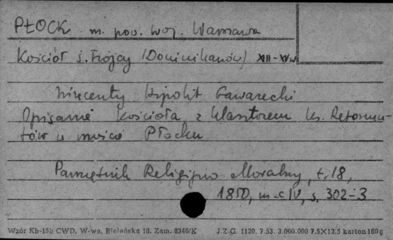 PŁOCK m. pow. woj. Warszawa
Kościół ś. Trójcy (Dominikanów) XIII-XIX w.
Wincenty Hipolit Gawarecki
Opisanie kościoła z klasztorem ks. Reforma-
tów w mieście Płocku
Pamiętnik Religijno Moralny, t. 18,
1850, m-c IV, s. 302-3
Wzór Kb-15b CWD, W-wa, Bielańska 18. Zam. 8346/K J.Z.G. 1120. 7.53. 3.000.000 7,5X12,5 karton 180 g